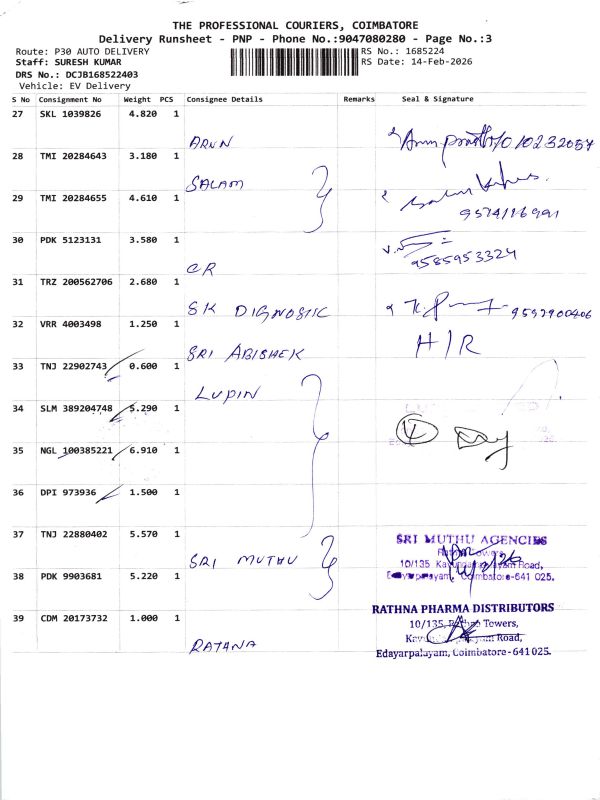 THE PROFESSIONAL COURIERS, COIMBATORE
Delivery Runsheet - PNP - Phone No.:9047080280 - Page No.:3
Route: P30 AUTO DELIVERY
RS No.: 1685224
Staff: SURESH KUMAR
RS Date: 14-Feb-2026
DRS No.: DCJB168522403
Vehicle: EV Delivery
S No Consignment No Weight PCS Consignee Details Remarks Seal & Signature
27 SKL 1039826 4.820 1
ARUN
28 TMI 20284643 3.180 1
SALAM
29 TMI 20284655 4.610 1
30 PDK 5123131 3.580 1
9585953324
CR
31 TRZ 200562706 2.680 1
SK DIGNOSTIC
32 VRR 4003498 1.250 1
H/R
SRI ABISHEK
33 TNJ 22902743 0.600 1
LUPIN
34 SLM 389204748 5.290 1
35 NGL 100385221 6.910 1
36 DPI 973936 1.500 1
37 TNJ 22880402 5.570 1
SRI MUTHU AGENCIES
SRI MUTHU
10/135 Road,
38 PDK 9903681 5.220 1
Coimbatore-641 025.
39 CDM 20173732 1.000 1
RATHNA PHARMA DISTRIBUTORS
10/135, Towers,
Road,
RATANA
Edayarpalayam, Coimbatore-641 025.